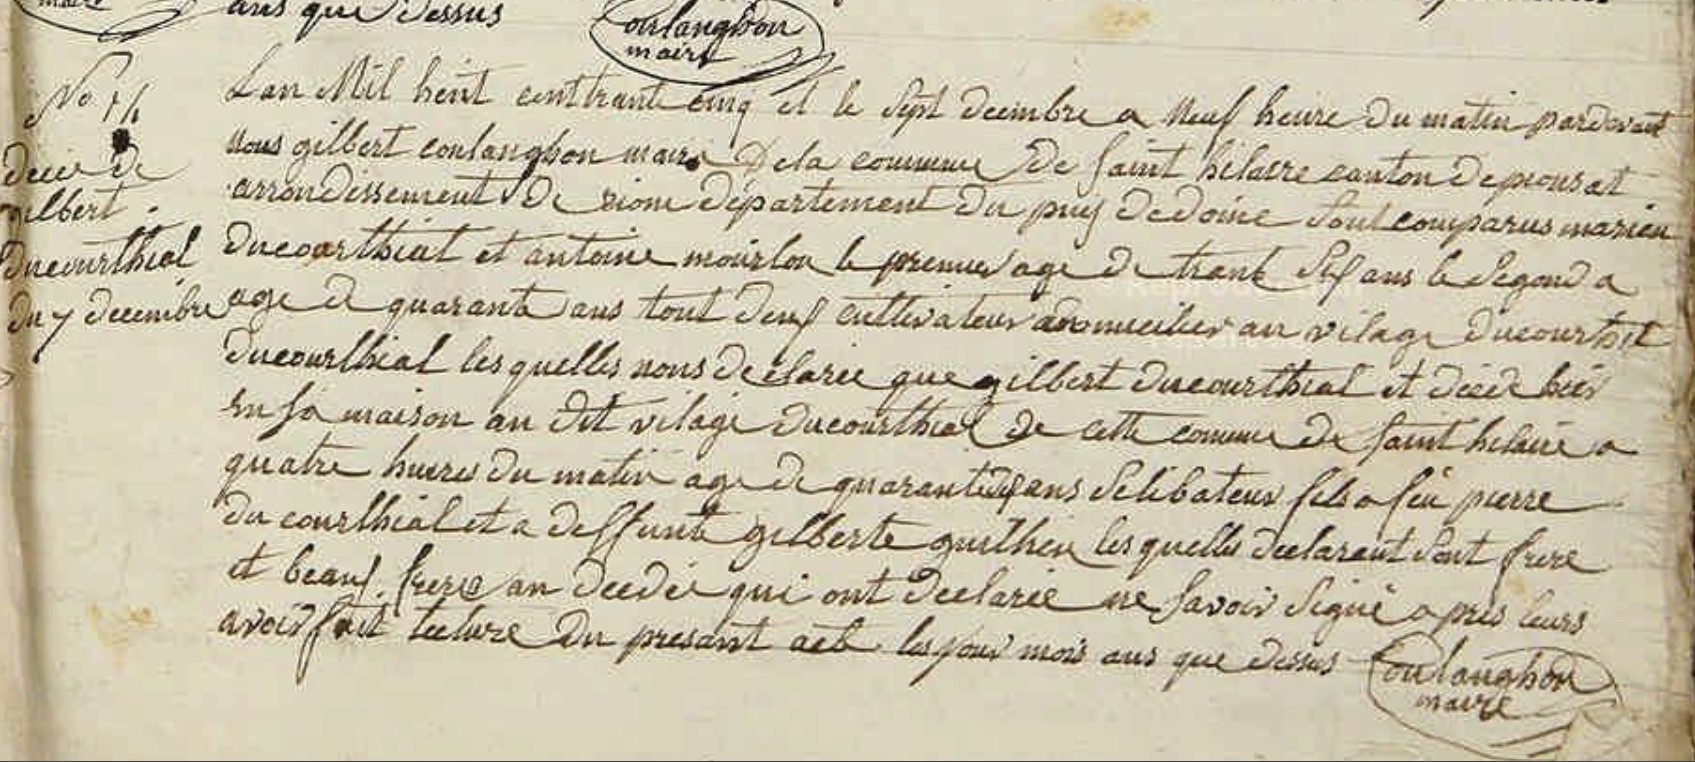 maire
ans que dessus
Coulanghon
maire
No 14
Lan Mil heint cent trante cinq et le Sept decembre a Neuf heure du matin pardevant
Nous gilbert coulanghon maire Dela commune de saint hilaire canton depionsat
arrondissement de riom département du puy dedome sont comparus marien
ducourthial et antoine mourlon le premier age de trante Sef ans le Segond a
age de quarante ans tout deuf cultivateur domicilier au vilage ducourthil
ducourthial les quelles nous declarée que gilbert ducourthial et décédé hier
en sa maison au dit vilage ducourthial de cette comune de saint helaire a
quatre hueres du matin age de quarante ans Selibateur fils a feu pierre
du courthial et a deffunte gilberte les quelles declarant sont frere
et beauf frere au décedé qui ont declarée ne savoir Signé apres leurs
avoir fait lecture du presant acte les jour mois ans que dessus
Coulanghon
maire
décè de
gilbert
ducourthial
du 7 decembre